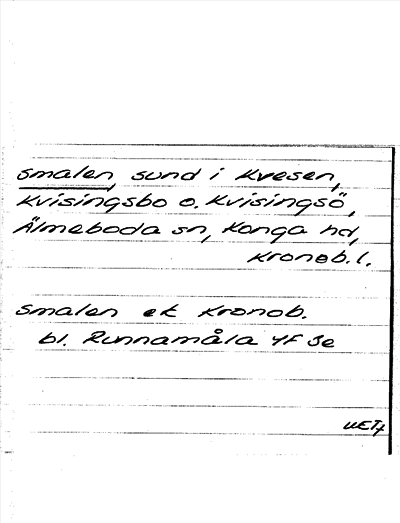 Smalen, sund i Kvesen,
Kvisingsbo o. Kvisingsö,
Älmeboda sn, Konga hd,
Kronob. l.
Smalen ek Kronob.
bl. Runnamåla 4F Se